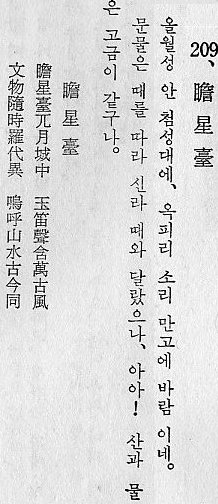 209、瞻星臺
올월성 안 첨성대에、옥피리 소리 만고에 바람 이네。
문물은 때를 따라 신라 때와 달랐으나、아아! 산과 물
은 고금이 같구나。
瞻星臺
瞻星臺兀月城中 玉笛聲含萬古風
文物隨時羅代異 嗚呼山水古今同